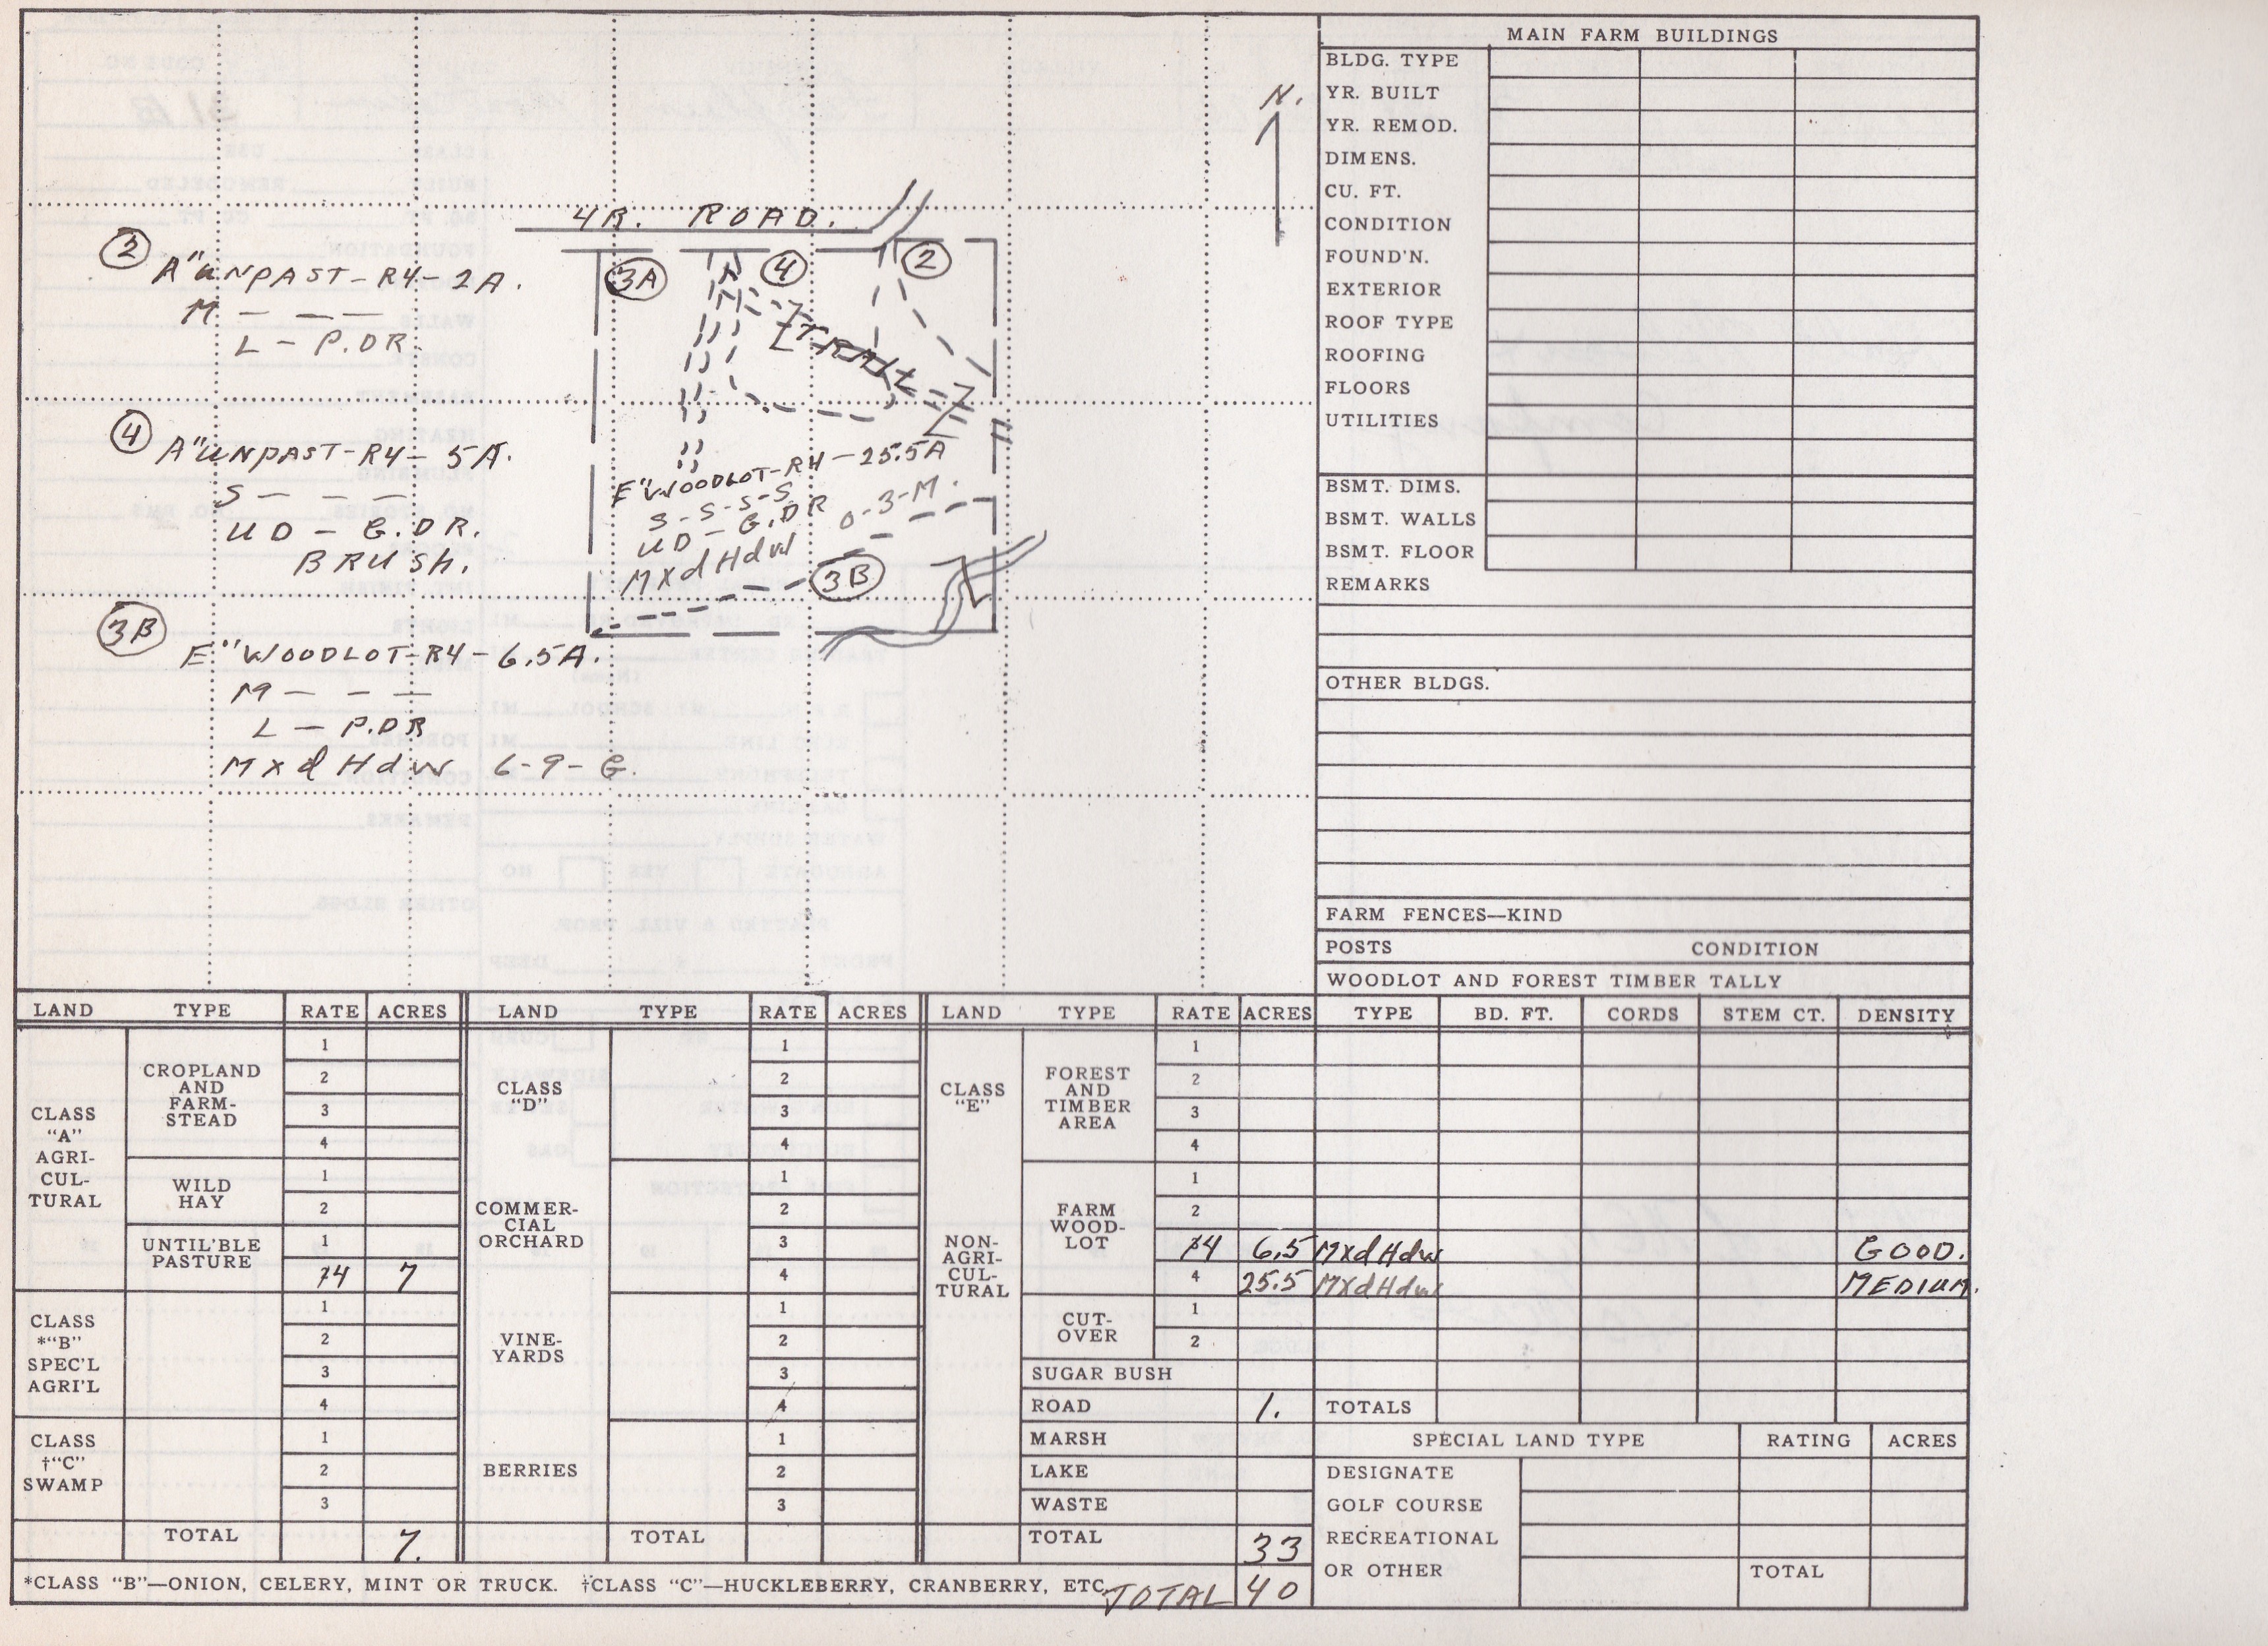 N.
4R. ROAD.
② A"UNPAST-R4-2A.
M — — —
L - P.DR
④ A"UNPAST-R4-5A.
S — — —
UD - G.DR.
BRUSH.
3B
E"WOODLOT-R4-6.5A.
M — — —
L — P.DR
MxdHdw 6-9-G.
3A ④ ②
TRAIL
E"WOODLOT-R4-25.5A
S-S-S-S
UD-G.DR 0-3-M.
MxdHdw
3B
MAIN FARM BUILDINGS
BLDG. TYPE
YR. BUILT
YR. REMOD.
DIMENS.
CU. FT.
CONDITION
FOUND'N.
EXTERIOR
ROOF TYPE
ROOFING
FLOORS
UTILITIES
BSMT. DIMS.
BSMT. WALLS
BSMT. FLOOR
REMARKS
OTHER BLDGS.
FARM FENCES—KIND
POSTS CONDITION
WOODLOT AND FOREST TIMBER TALLY
LAND TYPE RATE ACRES LAND TYPE RATE ACRES LAND TYPE RATE ACRES TYPE BD. FT. CORDS STEM CT. DENSITY
CLASS
"A"
AGRI-
CUL-
TURAL
CROPLAND
AND
FARM-
STEAD
1
2
3
4
WILD
HAY
1
2
UNTIL'BLE
PASTURE
1
4 7
CLASS
*"B"
SPEC'L
AGRI'L
1
2
3
4
CLASS
†"C"
SWAMP
1
2
3
TOTAL 7.
CLASS
"D"
1
2
3
4
COMMER-
CIAL
ORCHARD
1
2
3
4
VINE-
YARDS
1
2
3
4
BERRIES
1
2
3
TOTAL
CLASS
"E"
NON-
AGRI-
CUL-
TURAL
FOREST
AND
TIMBER
AREA
1
2
3
4
FARM
WOOD-
LOT
1
2
4 6.5 MxdHdw GOOD.
4 25.5 MxdHdw MEDIUM.
CUT-
OVER
1
2
SUGAR BUSH
ROAD 1. TOTALS
MARSH
LAKE
WASTE
TOTAL 33
SPECIAL LAND TYPE RATING ACRES
DESIGNATE
GOLF COURSE
RECREATIONAL
OR OTHER TOTAL
*CLASS "B"—ONION, CELERY, MINT OR TRUCK. †CLASS "C"—HUCKLEBERRY, CRANBERRY, ETC.
TOTAL 40